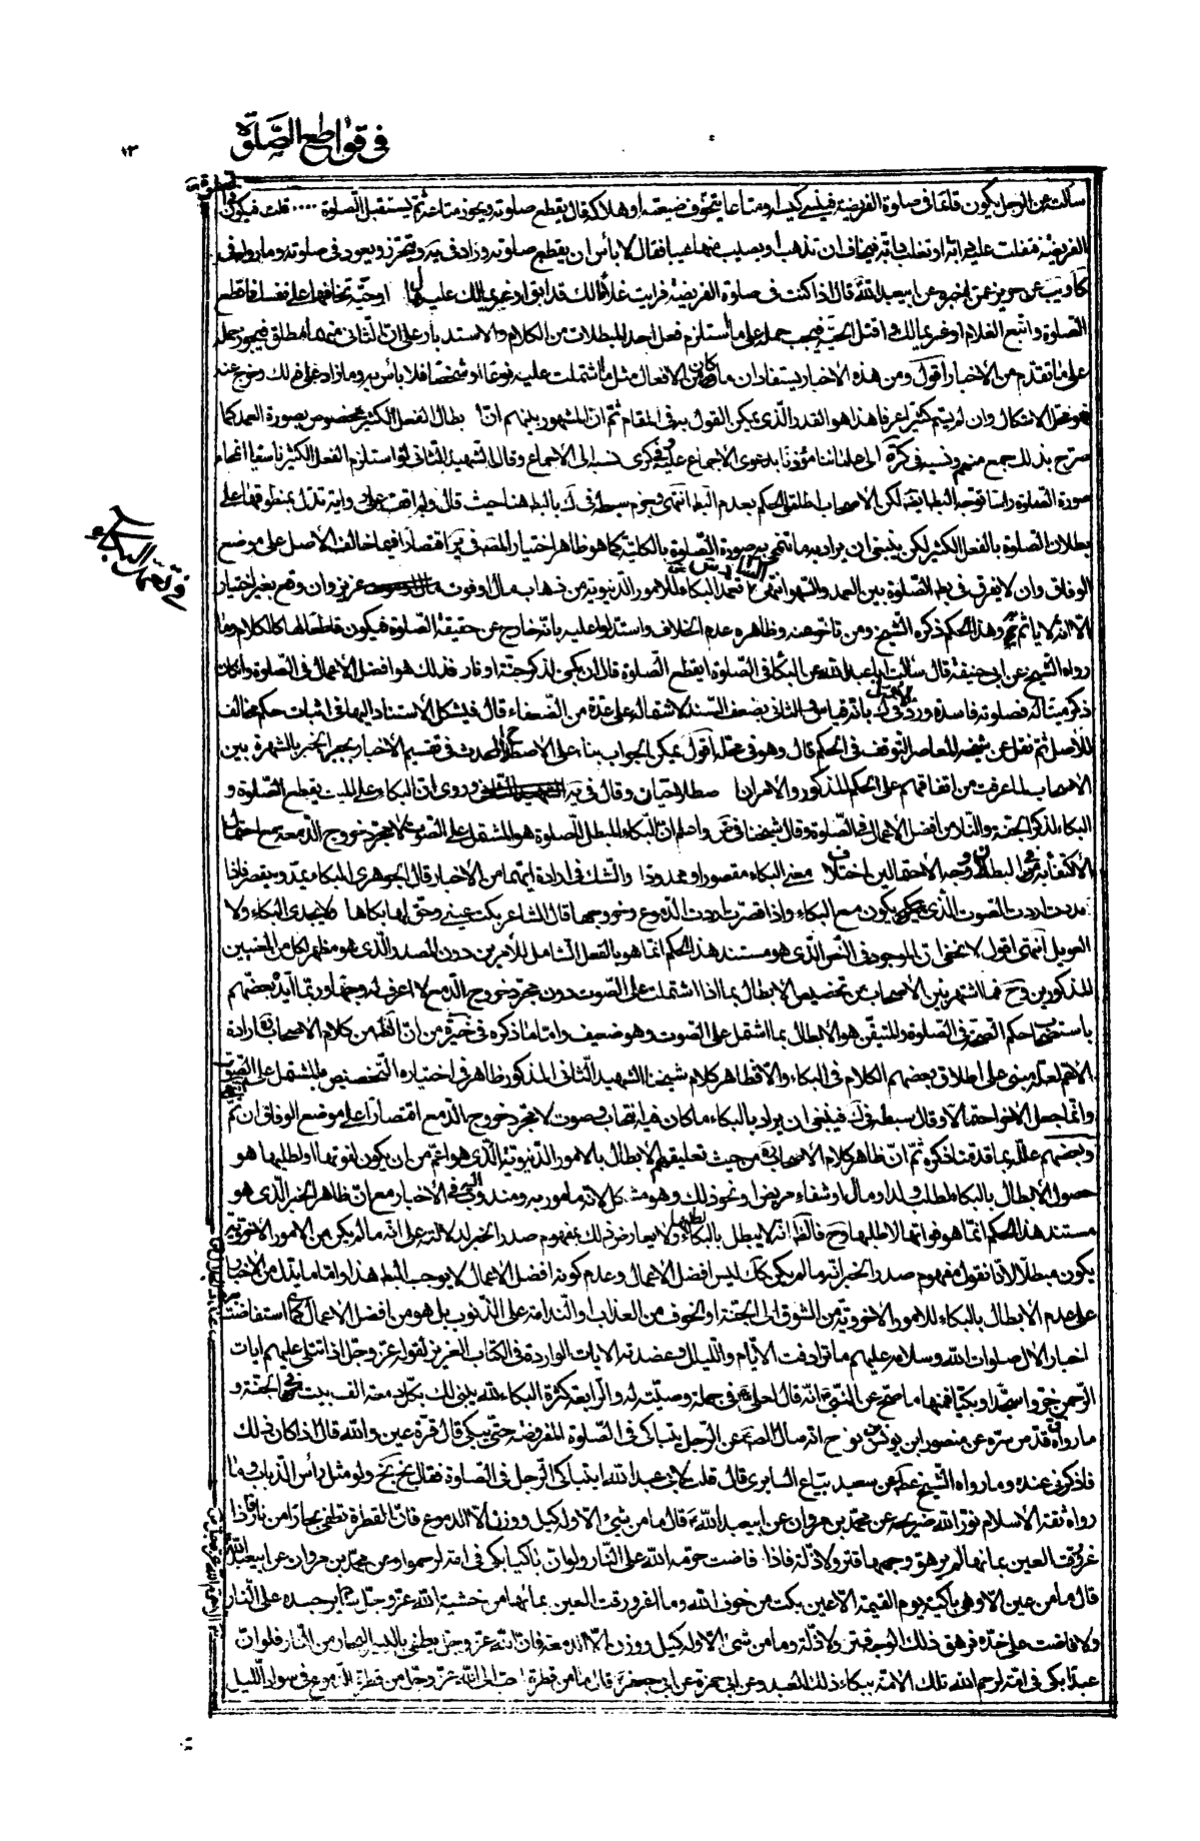 في قواطع الصلوة
١٣
سألت عن الرجل يكون قائما في صلوة الفريضة فينسى كيسه او متاعا يتخوف ضيعته او هلاكه قال يقطع صلوته ويحرز متاعه ثم يستقبل الصلوة .... قلت فيكون في
الفريضة فتفلت عليه دابة او تفلت دابته فيخاف ان تذهب او يصيب منها عنتا فقال لا بأس ان يقطع صلوته وزاد في يه ويتحرز ويعود في صلوته وما رواه في
عن حريز عمن اخبره عن ابيعبد الله قال اذا كنت في صلوة الفريضة فرايت غلاما لك قد ابق او غريما لك عليه مال او حية تخافها على نفسك فاقطع
الصلوة واتبع الغلام او غريما لك واقتل الحية فيجب حمله على ما استلزم فعل احد المبطلات من الكلام والاستدبار على ان الثاني منهما مطلق فيجوز حمله
على ما تقدم من الاخبار اقول ومن هذه الاخبار يستفاد ان ما كان من الافعال مثل ما اشتملت عليه نوعا او شخصا فلا بأس به وما زاد على ذلك وخرج عنه
فهو محل الاشكال وان لم يتم كثيرا عرفا هذا هو القدر الذي يمكن القول به في المقام ثم ان المشهور بينهم ان ابطال الفعل الكثير مخصوص بصورة العمد كما
صرح بذلك جمع منهم ونسبه في كرة الى علمائنا مؤذنا بدعوى الاجماع عليه وفي كرى نسبه الى الاصحاب وقال الشهيد الثاني لو استلزم الفعل الكثير ناسيا انمحاء
صورة الصلوة راسا توجه البطلان ايضا لكن الاصحاب اطلقوا الحكم بعدم البط انتهى وجزم سبطه في ك بالبط هنا حيث قال ولم اقف على رواية تدل بمنطوقها على
بطلان الصلوة بالفعل الكثير لكن ينبغي ان يراد به ما تنمحي به صورة الصلوة بالكلية كما هو ظاهر اختيار المصنف في بر اقتصارا فيما خالف الاصل على موضع
الوفاق وان لا يفرق في بط الصلوة بين العمد والسهو انتهى السادس تعمد البكاء للامور الدنيوية من ذهاب مال او فوت عزيز وان وقع بغير اختيار
الا انه لا ياثم وهذا الحكم ذكره الشيخ ومن تاخر عنه وظاهره عدم الخلاف واستدلوا عليه بانه خارج عن حقيقة الصلوة فيكون قاطعا لها كالكلام وما
رواه الشيخ عن ابي حنيفة قال سألت ابا عبد الله عن البكاء في الصلوة ايقطع الصلوة قال ان بكى لذكر جنة او نار فذلك هو افضل الاعمال في الصلوة وان كان
ذكر ميتا له فصلوته فاسدة ورد في ك الاول بانه قياس وفي الثاني بضعف السند لاشتماله على عدة من الضعفاء قال فيشكل الاستناد اليها في اثبات حكم مخالف
للاصل ثم نقل عن شيخه المعاصر التوقف في الحكم قال وهو في محله اقول يمكن الجواب بناء على الاصطلاح المحدث في تقسيم الاخبار بجبر الخبر بالشهرة بين
الاصحاب لما عرفت من اتفاقهم على الحكم المذكور والامران اصطلاحيان وقال في يه وروى ان البكاء على الميت يقطع الصلوة و
البكاء لذكر الجنة والنار من افضل الاعمال في الصلوة وقال شيخنا في ض واعلم ان البكاء المبطل للصلوة هو المشتمل على الصوت لا مجرد خروج الدمع مع احتمال
الاكتفاء به في البطلان ووجه الاحتمالين اختلاف معنى البكاء مقصورا وممدودا والشك في ارادة ايهما من الاخبار قال الجوهري البكاء يمد ويقصر فاذا
مددت اردت الصوت الذي يكون مع البكاء واذا قصرت اردت الدموع وخروجها قال الشاعر بكت عيني وحق لها بكاها وما يجدي البكاء ولا
العويل انتهى اقول لا يخفى ان الموجود في النص الذي هو مستند هذا الحكم انما هو بالفعل الشامل للامرين دون المصدر الذي هو مظهر لكل من المعنيين
المذكورين وح فما اشتهر بين الاصحاب من تخصيص الابطال بما اذا اشتملت على الصوت دون مجرد خروج الدمع لا اعرف له وجها وربما ايده بعضهم
باستصحاب حكم الصحة في الصلوة والمتيقن هو الابطال بما اشتمل على الصوت وهو ضعيف واما ما ذكره في خيرة من ان الظ من كلام الاصحاب ارادة
الاعم لعله مبني على اطلاق بعضهم الكلام في البكاء والا فظاهر كلام شيخنا الشهيد الثاني المذكور ظاهر في اختياره التخصيص بالمشتمل على الصوت
وانما جعل الاخر احتمالا وقال سبطه في ك فينبغي ان يراد بالبكاء ما كان فيه انتحاب وصوت لا مجرد خروج الدمع اقتصارا على موضع الوفاق ان تم
وبعضهم علله بما قدمنا ذكره ثم ان ظاهر كلام الاصحاب من حيث تعليقهم الابطال بالامور الدنيوية الذي هو اعم من ان يكون لفوتها او لطلبها هو
حصول الابطال بالبكاء لطلب ولد او مال او شفاء مريض او نحو ذلك وهو مشكل لانه مأمور به ومندوب اليه في الاخبار مع ان ظاهر الخبر الذي هو
مستند هذا الحكم انما هو فواتها لا طلبها وح فالظ انه لا يبطل بالبكاء لطلبها ولا يعارض ذلك بمفهوم صدر الخبر لدلالته على انه ما لم يكن من الامور الاخروية
يكون مبطلا لانا نقول مفهوم صدر الخبر انه ما لم يكن كك ليس افضل الاعمال وعدم كونه افضل الاعمال لا يوجب البط هذا واما ما يدل من الاخبار
على عدم الابطال بالبكاء للامور الاخروية من الشوق الى الجنة او الخوف من العذاب او الندامة على الذنوب بل هو من افضل الاعمال كما استفاضت به
اخبار الال صلوات الله وسلامه عليهم ما ترادفت الايام والليالي وعضدته الايات الواردة في الكتاب العزيز لقوله عز وجل اذا تتلى عليهم ايات
الرحمن خروا سجدا وبكيا فمنها ما صح عن النبي ص انه قال لعلي ع في جملة وصيته له والرابعة كثرة البكاء لله يبنى لك بكل دمعة الف بيت في الجنة و
ما رواه في قدس سره عن منصور ابن يونس بزرج انه سال الصادق عن الرجل يتباكى في الصلوة المفروضة حتى يبكي قال قرة عين والله قال اذا كان ذلك
فاذكرني عنده وما رواه الشيخ عن سعيد بياع السابري قال قلت لابي عبد الله ايتباكى الرجل في الصلوة فقال بخ بخ ولو مثل رأس الذباب وما
رواه ثقة الاسلام نور الله ضريحه عن محمد بن مروان عن ابيعبد الله ع قال ما من شيء الا وله كيل ووزن الا الدموع فان القطرة تطفي بحارا من نار فاذا
اغرورقت العين بمائها لم يرهق وجهها قتر ولا ذلة فاذا فاضت حرمه الله على النار ولو ان باكيا بكى في امة لرحموا وعن محمد بن مروان عن ابيعبد الله
قال ما من عين الا وهي باكية يوم القيمة الا عين بكت من خوف الله وما اغرورقت العين بمائها من خشية الله عز وجل الا حرم سائر جسده على النار
ولا فاضت على خده فرهق ذلك الوجه قتر ولا ذلة وما من شيء الا وله كيل ووزن الا الدمعة فان الله عز وجل يطفي باليسير البحار من النار فلو ان
عبدا بكى في امة لرحم الله تلك الامة ببكاء ذلك العبد وعن ابي حمزة عن ابي جعفر ع قال ما من قطرة احب الى الله عز وجل من قطرة الدموع في سواد الليل
في تعمد البكاء